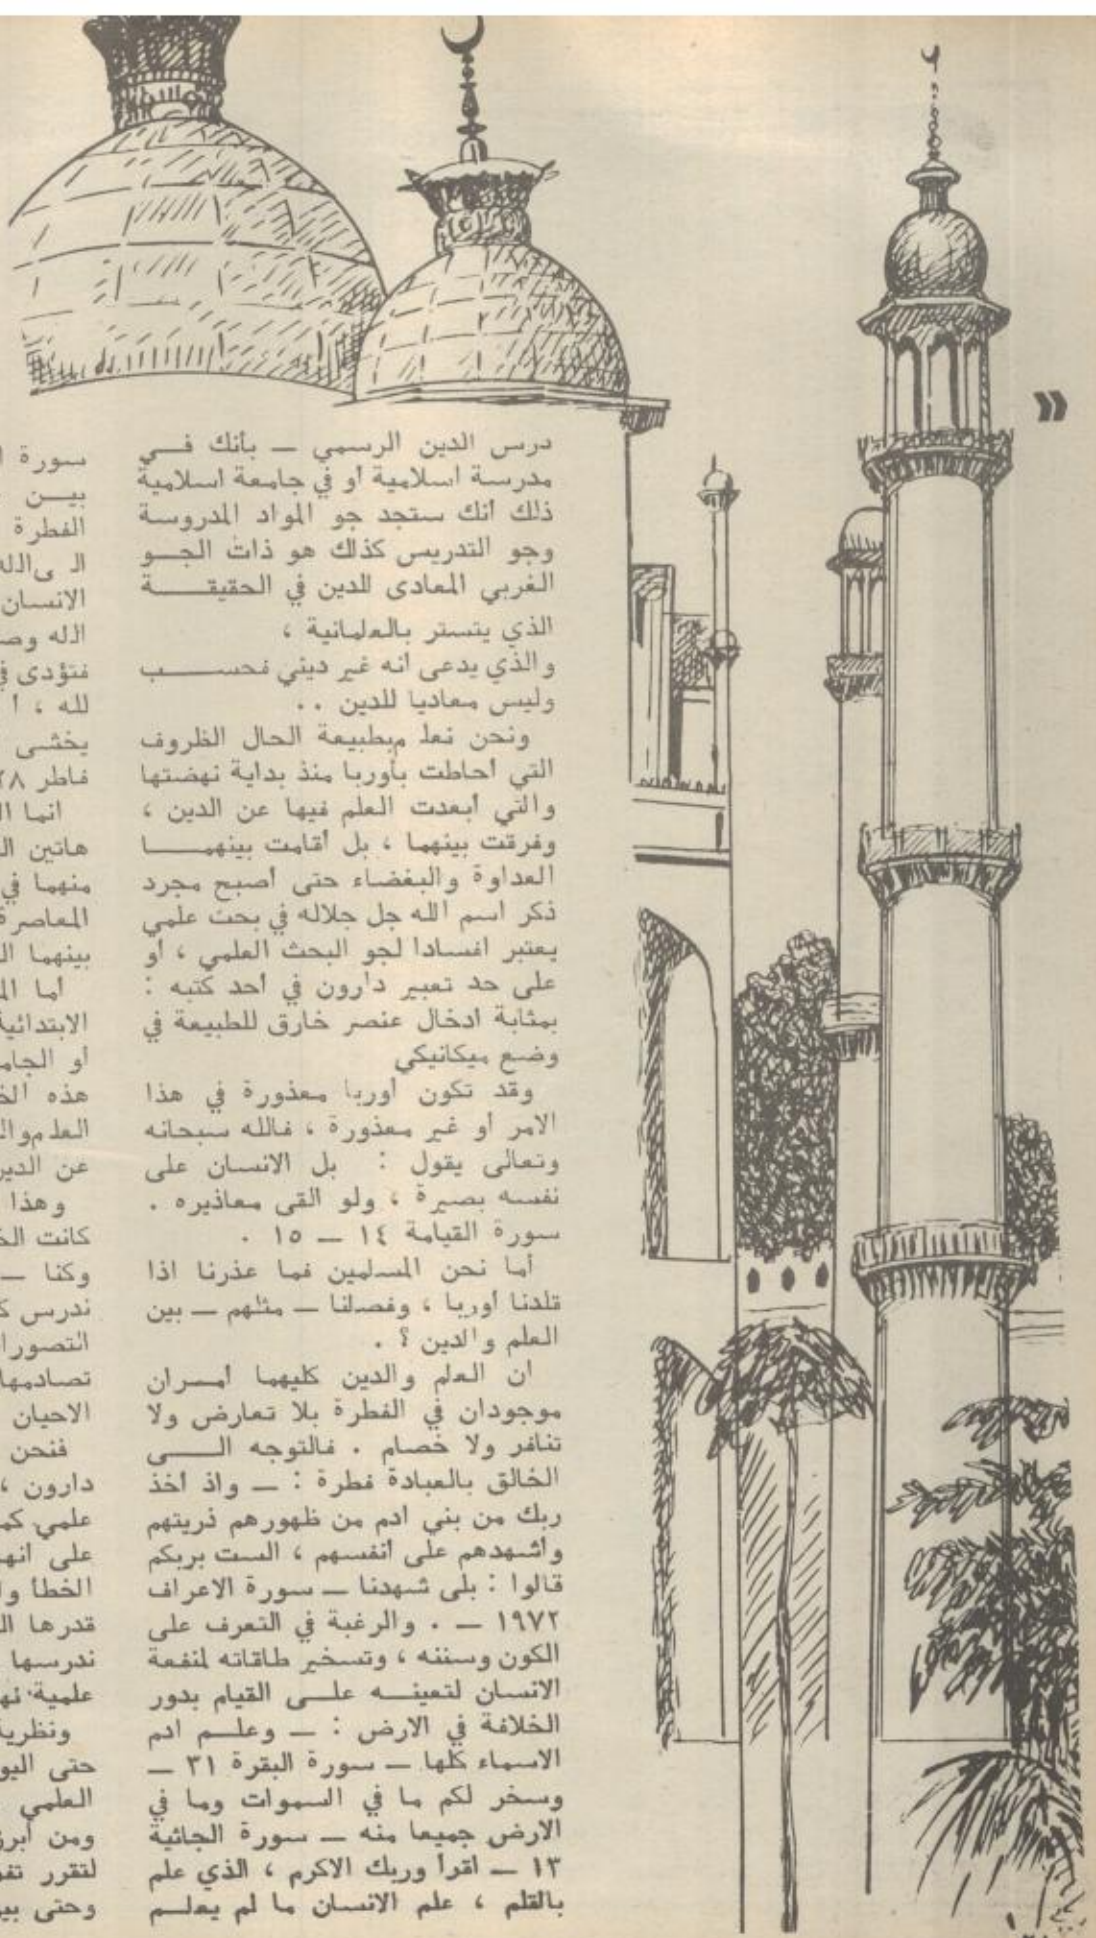 »
درس الدين الرسمي — بأنك فـــي
مدرسة اسلامية أو في جامعة اسلامية
ذلك أنك ستجد جو المواد المدروسة
وجو التدريس كذلك هو ذات الجـــو
الغربي المعادى للدين في الحقيقـــة
الذي يتستر بالعلمانية ،
والذي يدعى انه غير ديني فحســـب
وليس معاديا للدين . .
ونحن نعلـ مبطبيعة الحال الظروف
التي أحاطت بأوربا منذ بداية نهضتها
والتي أبعدت العلم فيها عن الدين ،
وفرقت بينهما ، بل أقامت بينهمـــا
العداوة والبغضاء حتى أصبح مجرد
ذكر اسم الله جل جلاله في بحث علمي
يعتبر افسادا لجو البحث العلمي ، أو
على حد تعبير دارون في أحد كتبه :
بمثابة أدخال عنصر خارق للطبيعة في
وضع ميكانيكي
وقد تكون أوربا معذورة في هذا
الامر أو غير معذورة ، فالله سبحانه
وتعالى يقول : بل الانسان على
نفسه بصيرة ، ولو القى معاذيره .
سورة القيامة ١٤ — ١٥ .
أما نحن المسلمين فما عذرنا اذا
قلدنا أوربا ، وفصلنا — مثلهم — بين
العلم والدين ؟ .
ان العلم والدين كليهما أمـــران
موجودان في الفطرة بلا تعارض ولا
تنافر ولا خصام . فالتوجه الـــى
الخالق بالعبادة فطرة : — واذ أخذ
ربك من بني ادم من ظهورهم ذريتهم
وأشهدهم على أنفسهم ، الست بربكم
قالوا : بلى شهدنا — سورة الاعراف
١٩٧٢ — . والرغبة في التعرف على
الكون وسننه ، وتسخير طاقاته لمنفعة
الانسان لتعينـــه علـــى القيام بدور
الخلافة في الارض : — وعلـــم ادم
الاسماء كلها — سورة البقرة ٣١ —
وسخر لكم ما في السموات وما في
الارض جميعا منه — سورة الجاثية
١٣ — اقرأ وربك الاكرم ، الذي علم
بالقلم ، علم الانسان ما لم يعلـــم
سورة
بيـــن
الفطرة
الـ ىالله
الانسان
الله
فتؤدى
لله ، أ
يخشى
فاطر ٢٨
انما
هاتين
منهما في
المعاصرة
بينهما
أما
الابتدائية
أو
هذه
العلـ
عن
وهذا
كانت
وكنا —
ندرس
التصورا
تصادمها
الاحيان
فنحن
دارون ،
علمي
على
الخطأ
قدرها
ندرسها
علمية
ونظرية
حتى
العلمي
ومن
لتقرر
وحتى